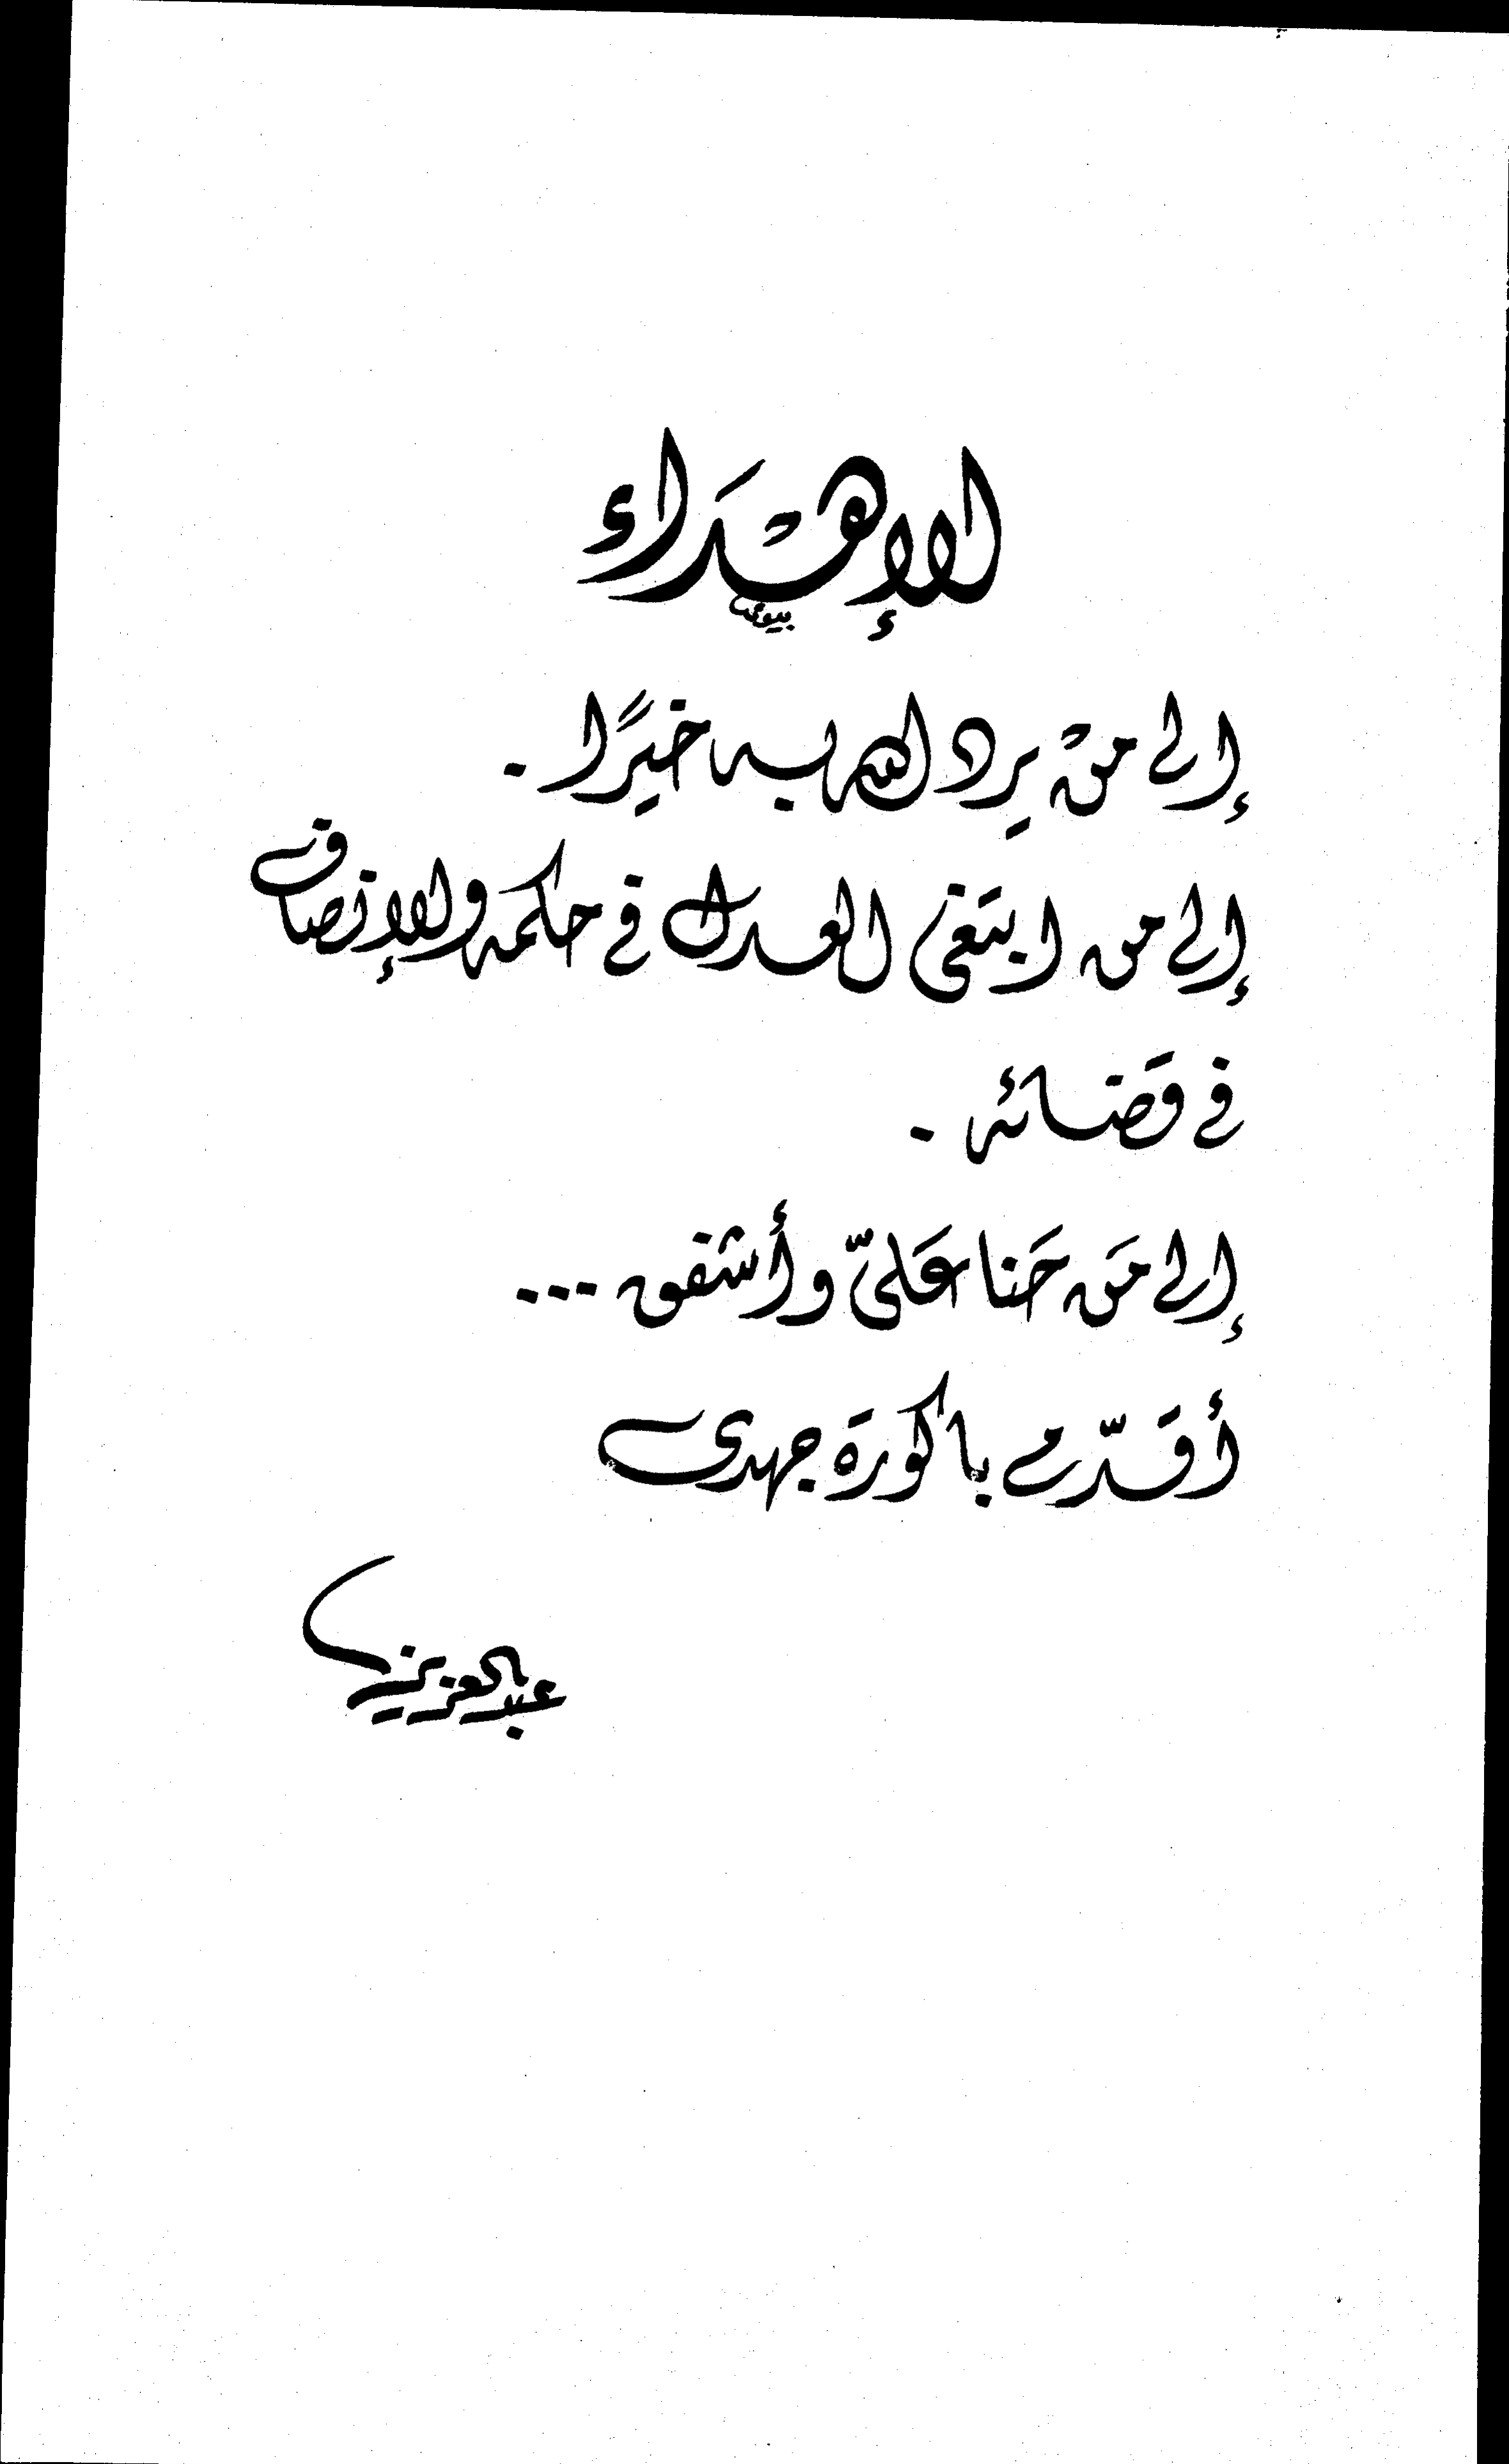 الإهْدَاء
إلى منْ يرد الله به خيرًا .
إلى من ابتغى العدل في حكمه والإنصاف
في قَضَائه .
إلى مَن حَنا عَليّ وأشفق ...
أقدّم باكورة جهدى
عبدالعزيز